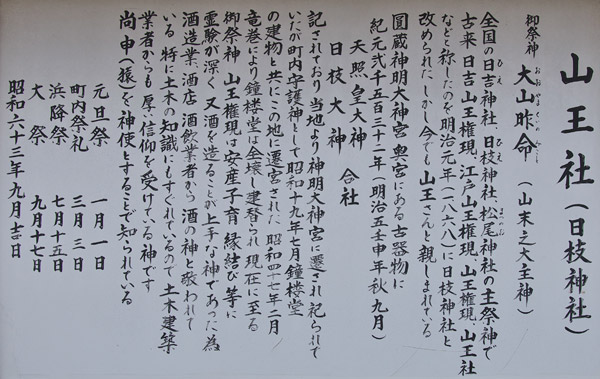 山王社（日枝神社）
御祭神 大山咋命（山末之大主神）
おおやまくいのみこと
全国の日吉神社、日枝神社、松尾神社の主祭神で
ひえ ひえ まつお
古来 日吉山王権現、江戸山王権現、山王権現、山王社
などと称したのを明治元年（一八六八）に日枝神社と
改められた、しかし今でも山王さんと親しまれている
圓蔵神明大神宮 奥宮にある古器物に
紀元弐千五百三十二年（明治五壬申年秋九月）
天照皇大神
日枝大神 合社
記されており 当地より神明大神宮に遷され 祀られて
いたが町内守護神として昭和十九年七月鐘楼堂
の建物と共にこの地に遷宮された 昭和四十七年二月
竜巻により鐘楼堂は全壊し建替られ 現在に至る
御祭神 山王権現は安産子育 縁結び等に
霊験が深く 又酒を造ることが上手な神であった為
酒造業、酒店、酒飲業者から 酒の神と敬われて
いる 特に土木の知識にもすぐれているので 土木建築
業者からも 厚い信仰を受けている神です
尚申（猿）を神使とすることで知られている
元旦祭 一月一日
町内祭礼 三月三日
浜降祭 七月十五日
大祭 九月十七日
昭和六十三年九月吉日